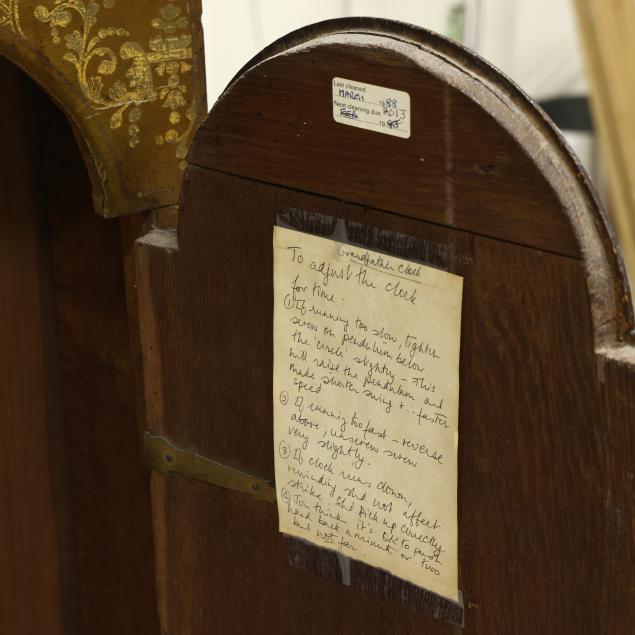 Last cleaned
MARCH 1988
Next cleaning due 2013
19
Grandfather Clock
To adjust the clock
for time:
① If running too slow, tighten
screw on pendulum below
the 'circle' slightly – This
will raise the pendulum and
make shorter swing & ∴ faster
speed
② If running too fast – reverse
above, unscrew screw
very slightly.
③ If clock runs down,
rewinding shd not affect
strike. Shd pick up correctly
④ Jon thinks it's OK to push
hand back a minute or two
but not far.